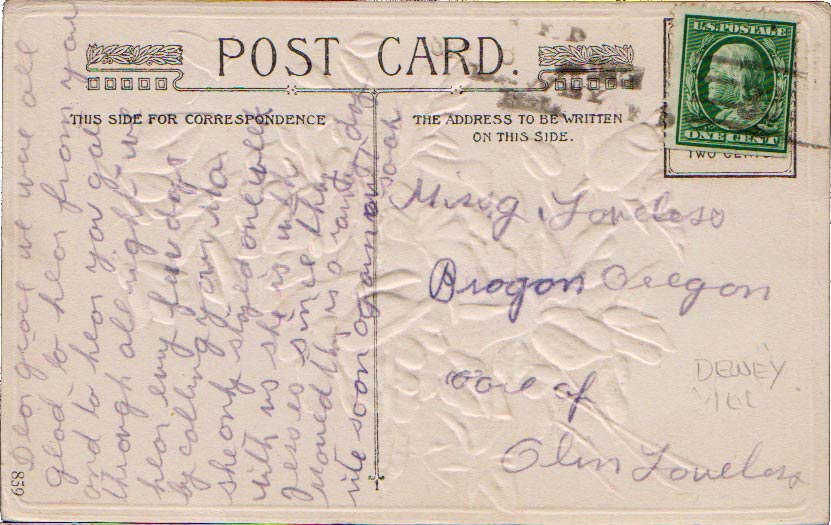 POST CARD.
THIS SIDE FOR CORRESPONDENCE
THE ADDRESS TO BE WRITTEN
ON THIS SIDE.
U.S. POSTAGE
ONE CENT
TWO CENTS
R.F.D.
Dear grace we were all
glad to hear from you
and to hear you gott
through all right we
hear evry few days
by calling your Ma
she only stayed one week
with us she is with
Jesses since they
moved this is a rainy day
rite soon again
Miss g Loveless
Brogan Oregon
Care of
Olin Loveless
DEWEY
859